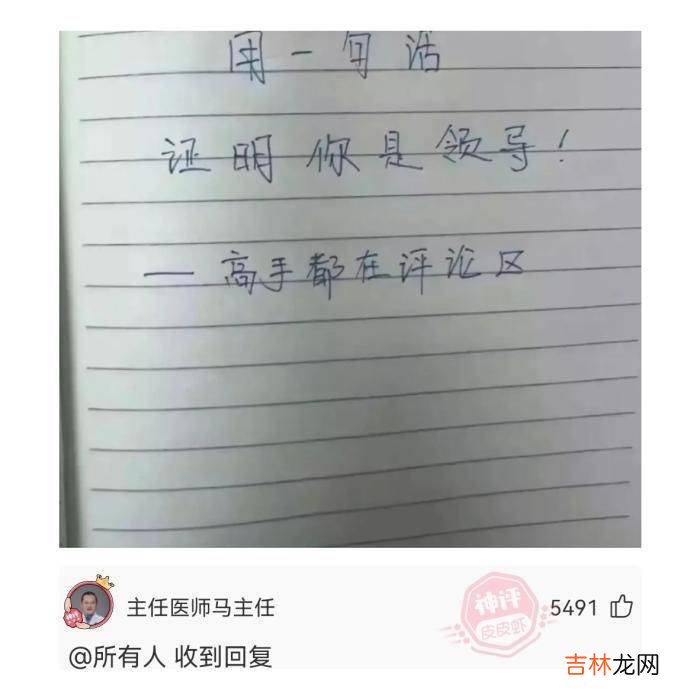 用一句话
证明你是领导！
— 高手都在评论区
主任医师马主任
神评
皮皮虾
5491
@所有人 收到回复
吉林龙网